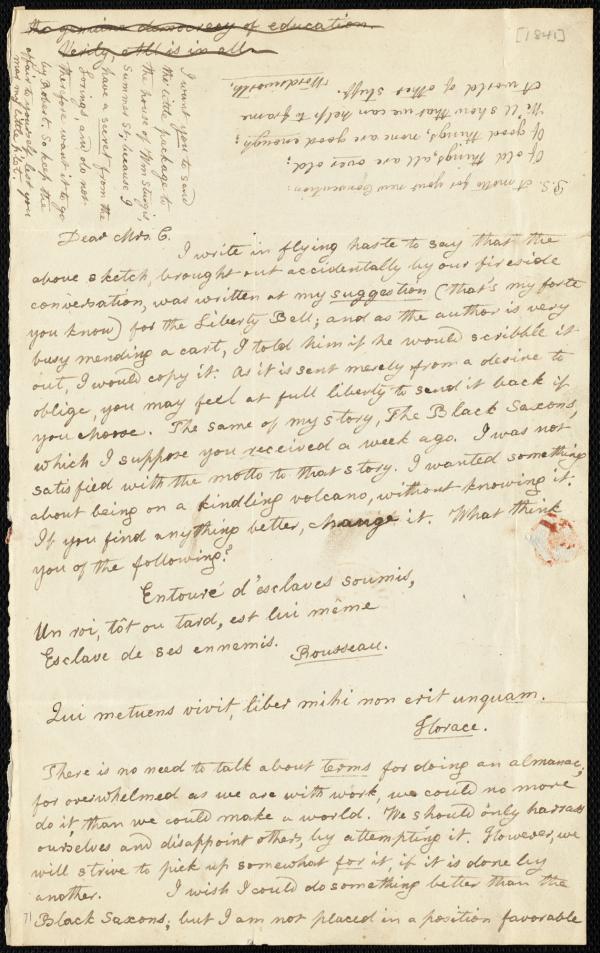 the genuine democracy of education.
Verily All is in all.
[1841]
I want you to send
the little package to
the house of Wm Sturgis,
Summer St, because I
have a secret from the
Lorings, and do not
therefore want it to go
by Robert. So keep the
affair to yourself, lest you
mar my little plot.
P.S. A motto for your new Convention:
Of old things, all are over old;
Of good things, none are good enough;
We'll show that we can help to frame
A world of other stuff.
Wordsworth.
Dear Mrs. C.
I write in flying haste to say that the
above sketch, brought out accidentally by our fireside
conversation, was written at my suggestion (that's my forte
you know) for the Liberty Bell; and as the author is very
busy mending a cart, I told him if he would scribble it
out, I would copy it. As it is sent merely from a desire to
oblige, you may feel at full liberty to send it back if
you choose. The same of my story, The Black Saxons,
which I suppose you received a week ago. I was not
satisfied with the motto to that story. I wanted something
about being on a kindling volcano, without knowing it.
If you find anything better, change it. What think
you of the following?
Entouré d'esclaves soumis,
Un roi, tôt ou tard, est lui même
Esclave de ses ennemis.
Rousseau.
Qui metuens vivit, liber mihi non erit unquam.
Horace.
There is no need to talk about terms for doing an almanac;
for overwhelmed as we are with work, we could no more
do it, than we could make a world. We should only harrass
ourselves and disappoint others, by attempting it. However, we
will strive to pick up somewhat for it, if it is done by
another. I wish I could do something better than the
Black Saxons; but I am not placed in a position favorable